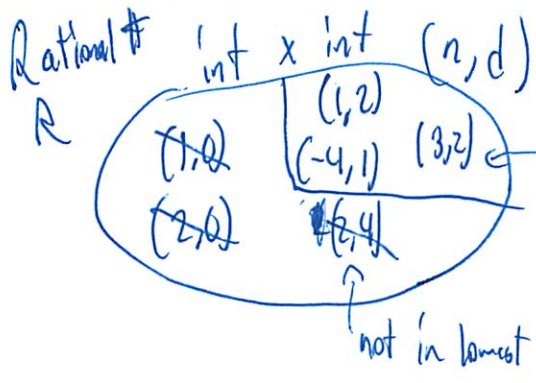 Rational # int x int (n, d)
R
(1,2)
(1,0) (-4,1) (3,2)
(2,0) (2,4)
not in lowest